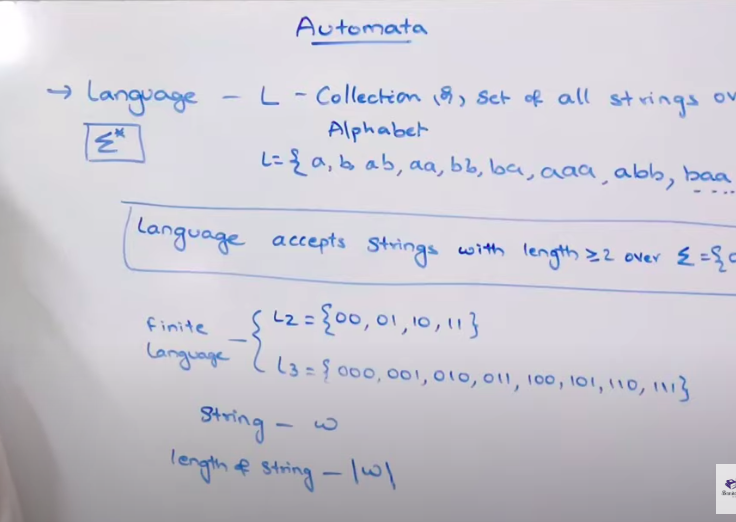 Automata
→ Language - L - Collection (or) set of all strings ov
Alphabet
Σ*
L={a, b ab, aa, bb, ba, aaa, abb, baa
Language accepts strings with length ≥2 over Σ={0
finite language - { L2 = {00, 01, 10, 11}
L3 = {000, 001, 010, 011, 100, 101, 110, 111}
String - w
length of string - |w|